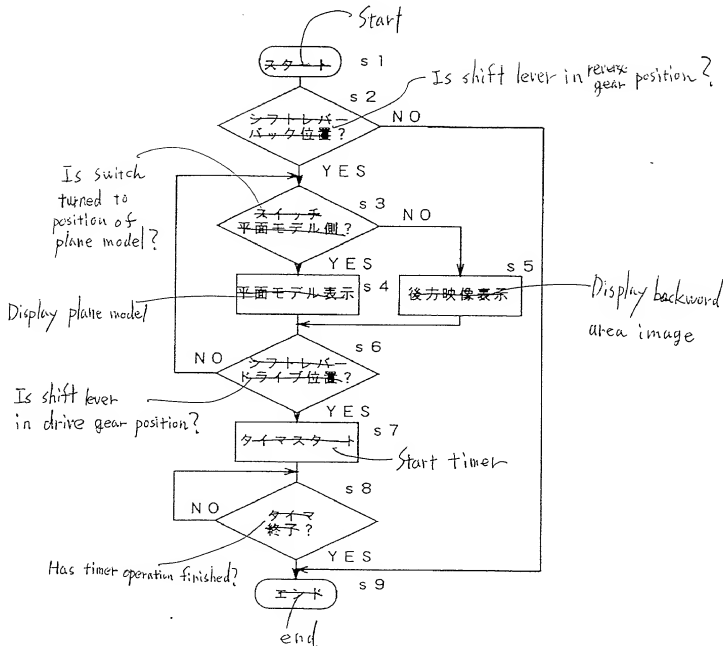 Start
スタート
s1
Is shift lever in reverse gear position?
s2
シフトレバー
バック位置?
NO
YES
Is switch
turned to
position of
plane model?
s3
スイッチ
平面モデル側?
NO
YES
s4
平面モデル表示
Display plane model
s5
後方映像表示
Display backword
area image
s6
シフトレバー
ドライブ位置?
NO
YES
Is shift lever
in drive gear position?
s7
タイマスタート
Start timer
s8
タイマ
終了?
NO
YES
Has timer operation finished?
s9
エンド
end